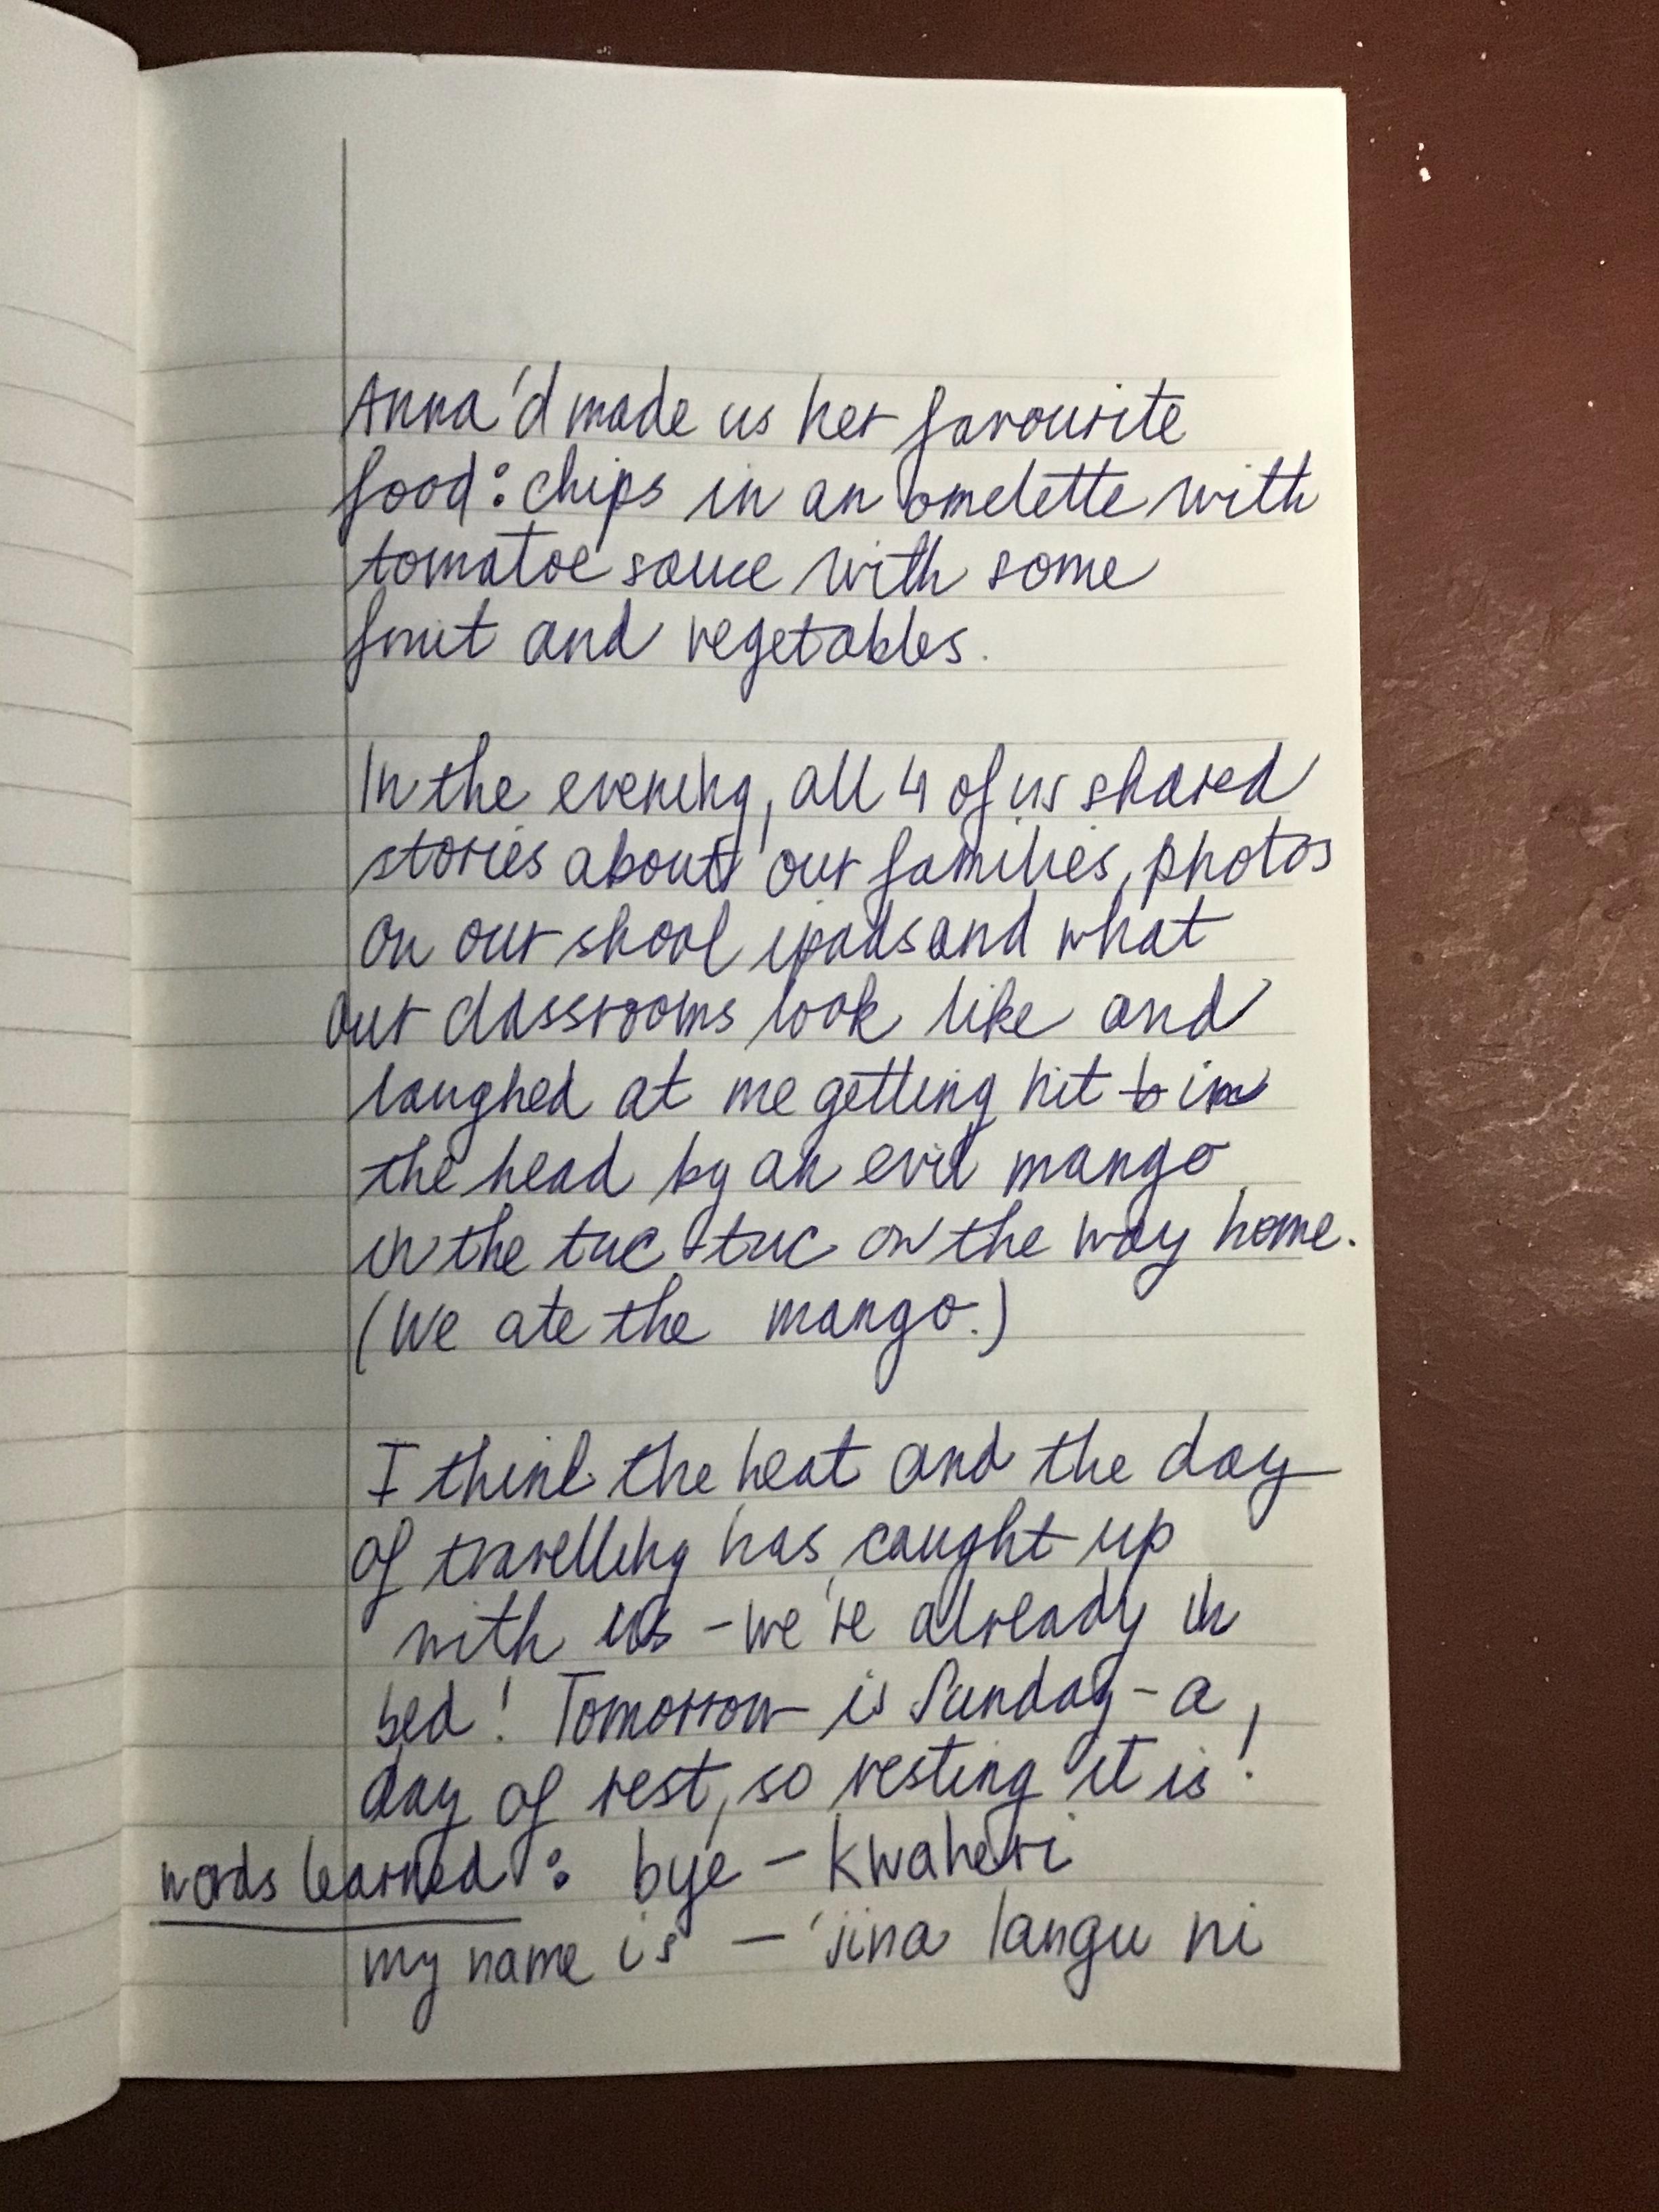 Anna'd made us her favourite
food: chips in an omelette with
tomatoe sauce with some
fruit and vegetables.
In the evening, all 4 of us shared
stories about our families, photos
on our shool ipads and what
our classrooms look like and
laughed at me getting hit b in
the head by an evil mango
in the tuc tuc on the way home.
(We ate the mango.)
I think the heat and the day
of travelling has caught up
with us - we're already in
bed! Tomorrow is Sunday - a
day of rest, so resting it is!
words learned: bye - kwaheri
my name is - jina langu ni